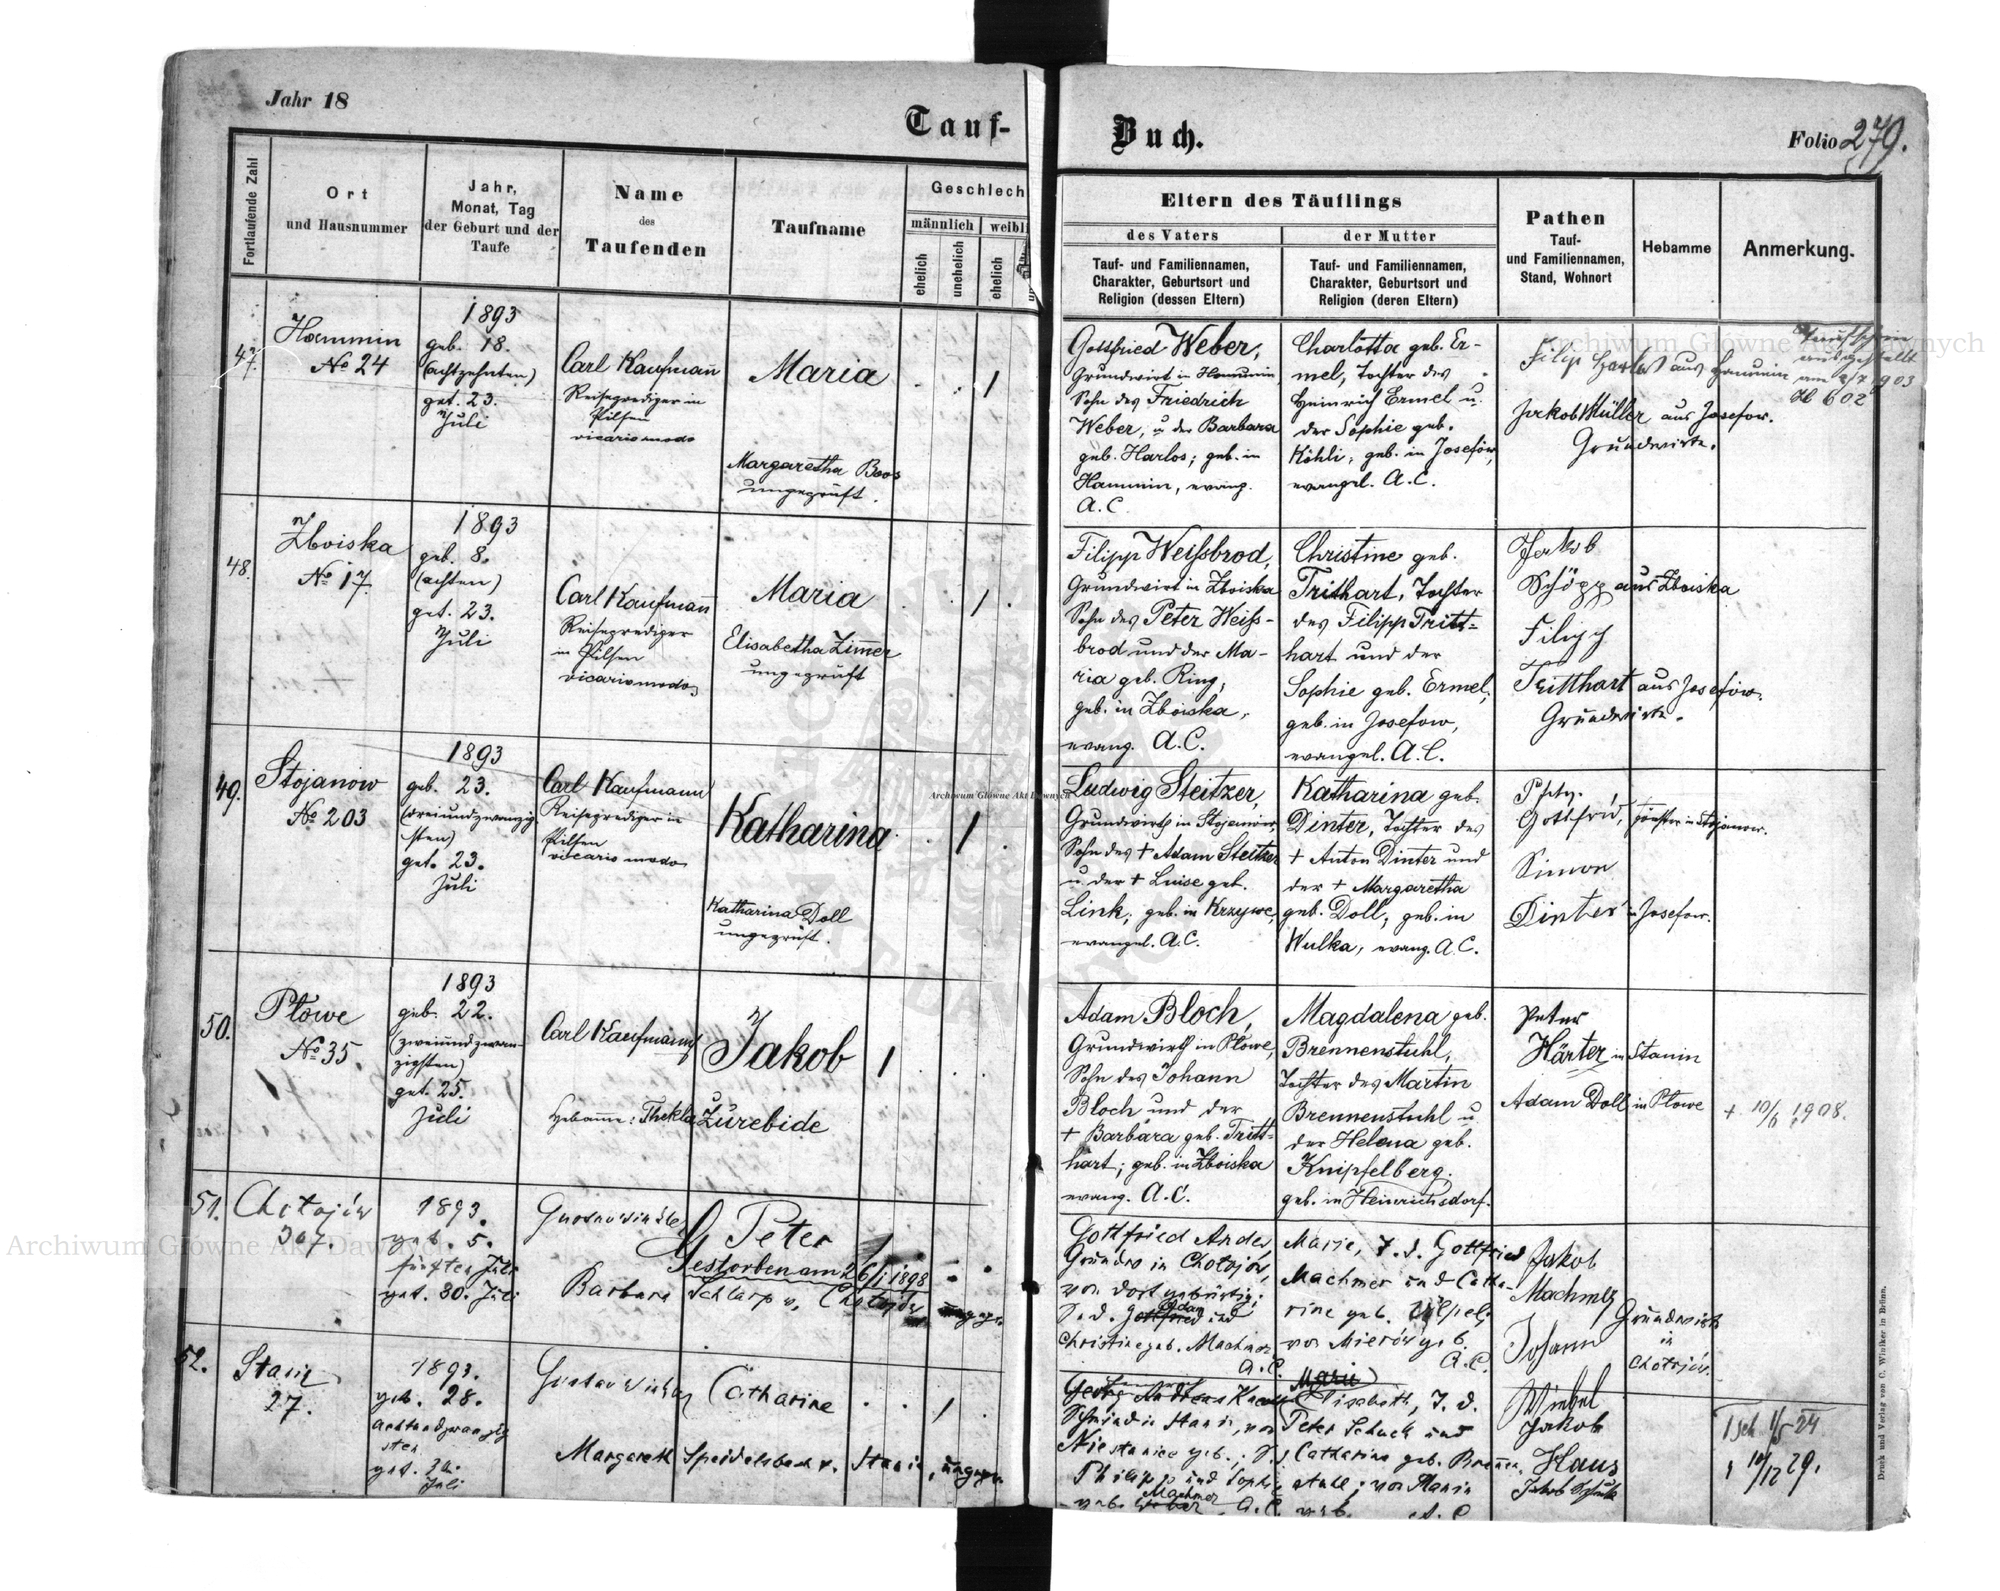 Jahr 18
Tauf-
Buch.
Folio 279.
Fortlaufende Zahl
Ort
und Hausnummer
Jahr,
Monat, Tag
der Geburt und der
Taufe
Name
des
Taufenden
Taufname
Geschlech
männlich
weibli
ehelich
unehelich
ehelich
Eltern des Täuflings
des Vaters
der Mutter
Tauf- und Familiennamen,
Charakter, Geburtsort und
Religion (dessen Eltern)
Tauf- und Familiennamen,
Charakter, Geburtsort und
Religion (deren Eltern)
Pathen
Tauf-
und Familiennamen,
Stand, Wohnort
Hebamme
Anmerkung.
47.
Hammin
No 24
1893
geb. 18.
(achtzehnten)
get. 23.
Juli
Carl Kaufman
Reiseprediger in
Pilsen
vicario modo
Maria
Margaretha Boos
ungeprüft.
1
Gottfried Weber,
Grundwirt in Hammin,
Sohn des Friedrich
Weber, u. der Barbara
geb. Harlos; geb. in
Hammin, evang.
A.C.
Charlotta geb. Er-
mel, Tochter des
Heinrich Ermel u.
der Sophie geb.
Köhli, geb. in Josefow,
evangel. A.C.
Filip Harlos aus Hammin
Jakob Müller aus Josefow.
Grundwirte.
Taufschein
ausgestellt
am 2/7 1903
No 602
48.
Zboiska
No 17.
1893
geb. 8.
(achten)
get. 23.
Juli
Carl Kaufmann
Reiseprediger
in Pilsen
vicario modo
Maria
Elisabetha Zimer
ungeprüft
1
Filipp Weissbrod,
Grundwirt in Zboiska
Sohn des Peter Weiss-
brod und der Ma-
ria geb. Ring,
geb. in Zboiska,
evang. A.C.
Christine geb.
Trithart, Tochter
des Filipp Tritt-
hart und der
Sophie geb. Ermel,
geb. in Josefow,
evangel. A.C.
Jakob
Schöpp aus Zboiska
Filipp
Tritthart aus Josefow.
Grundwirte.
49.
Stojanow
No 203
1893
geb. 23.
(dreiundzwanzig-
sten)
get. 23.
Juli
Carl Kaufmann
Reiseprediger in
Pilsen
vicario modo
Katharina
Katharina Doll
ungeprüft.
1
Ludwig Steitzer,
Grundwirth in Stojanow,
Sohn des + Adam Steitzer
u. der + Luise geb.
Link; geb. in Krzywe,
evangel. A.C.
Katharina geb.
Dinter, Tochter des
+ Anton Dinter und
der + Margaretha
geb. Doll; geb. in
Wulka, evang. A.C.
Gottfried, Förster in Stojanow.
Simon
Dinter in Josefow.
50.
Płowe
No 35.
1893
geb. 22.
(zweiundzwan-
zigsten)
get. 25.
Juli
Carl Kaufmann
Hebamme: Thekla Zurebide
Jakob
1
Adam Bloch,
Grundwirth in Płowe,
Sohn des Johann
Bloch und der
+ Barbara geb. Tritt-
hart; geb. in Zboiska
evang. A.C.
Magdalena geb.
Brennenstuhl,
Tochter des Martin
Brennenstuhl u.
der Helena geb.
Knipfelberg,
geb. in Heinrichsdorf.
Peter
Härter in Stanin
Adam Doll in Płowe
+ 10/6 1908.
51.
Chotojów
307.
1893.
geb. 5.
fünften Juli
get. 30. Juli
Peter
Gestorben am 26/1 1898
Barbara Scharp v. Chotojów
Gottfried Ander,
Grundw in Chotojów,
von dort gebürtig;
S. d. Gottfried und
Adam
Christine geb. Machmer
A.C.
Marie, T. d. Gottfried
Machmer und Catha-
rine geb.
von Mierów geb.
A.C.
Jakob
Machmer
Johann
Wiebel
Grundwirte
in
Chotojów.
52.
Stanin
27.
1893.
geb. 28.
achtundzwanzig
sten
get. 30.
Juli
Catharine
1
Margareth Speidelsbach v. Stanin, ungepr.
Georg Andreas
Schmied in Stanin, von
Niestanice geb., S. d.
Philipp und Sophi
Machmer
geb. Weber A.C.
Marie
Elisabeth, T. d.
Peter Schuck und
Catharina geb. Brennen-
stuhl; von Stanin
geb. A.C.
Jakob
Haus
Jakob Schuck
Tsch 1/5 24
10/12 29.
Druck und Verlag von C. Winiker in Brünn.
Archiwum Główne Akt Dawnych
Archiwum Główne Akt Dawnych
Archiwum Główne Akt Dawnych